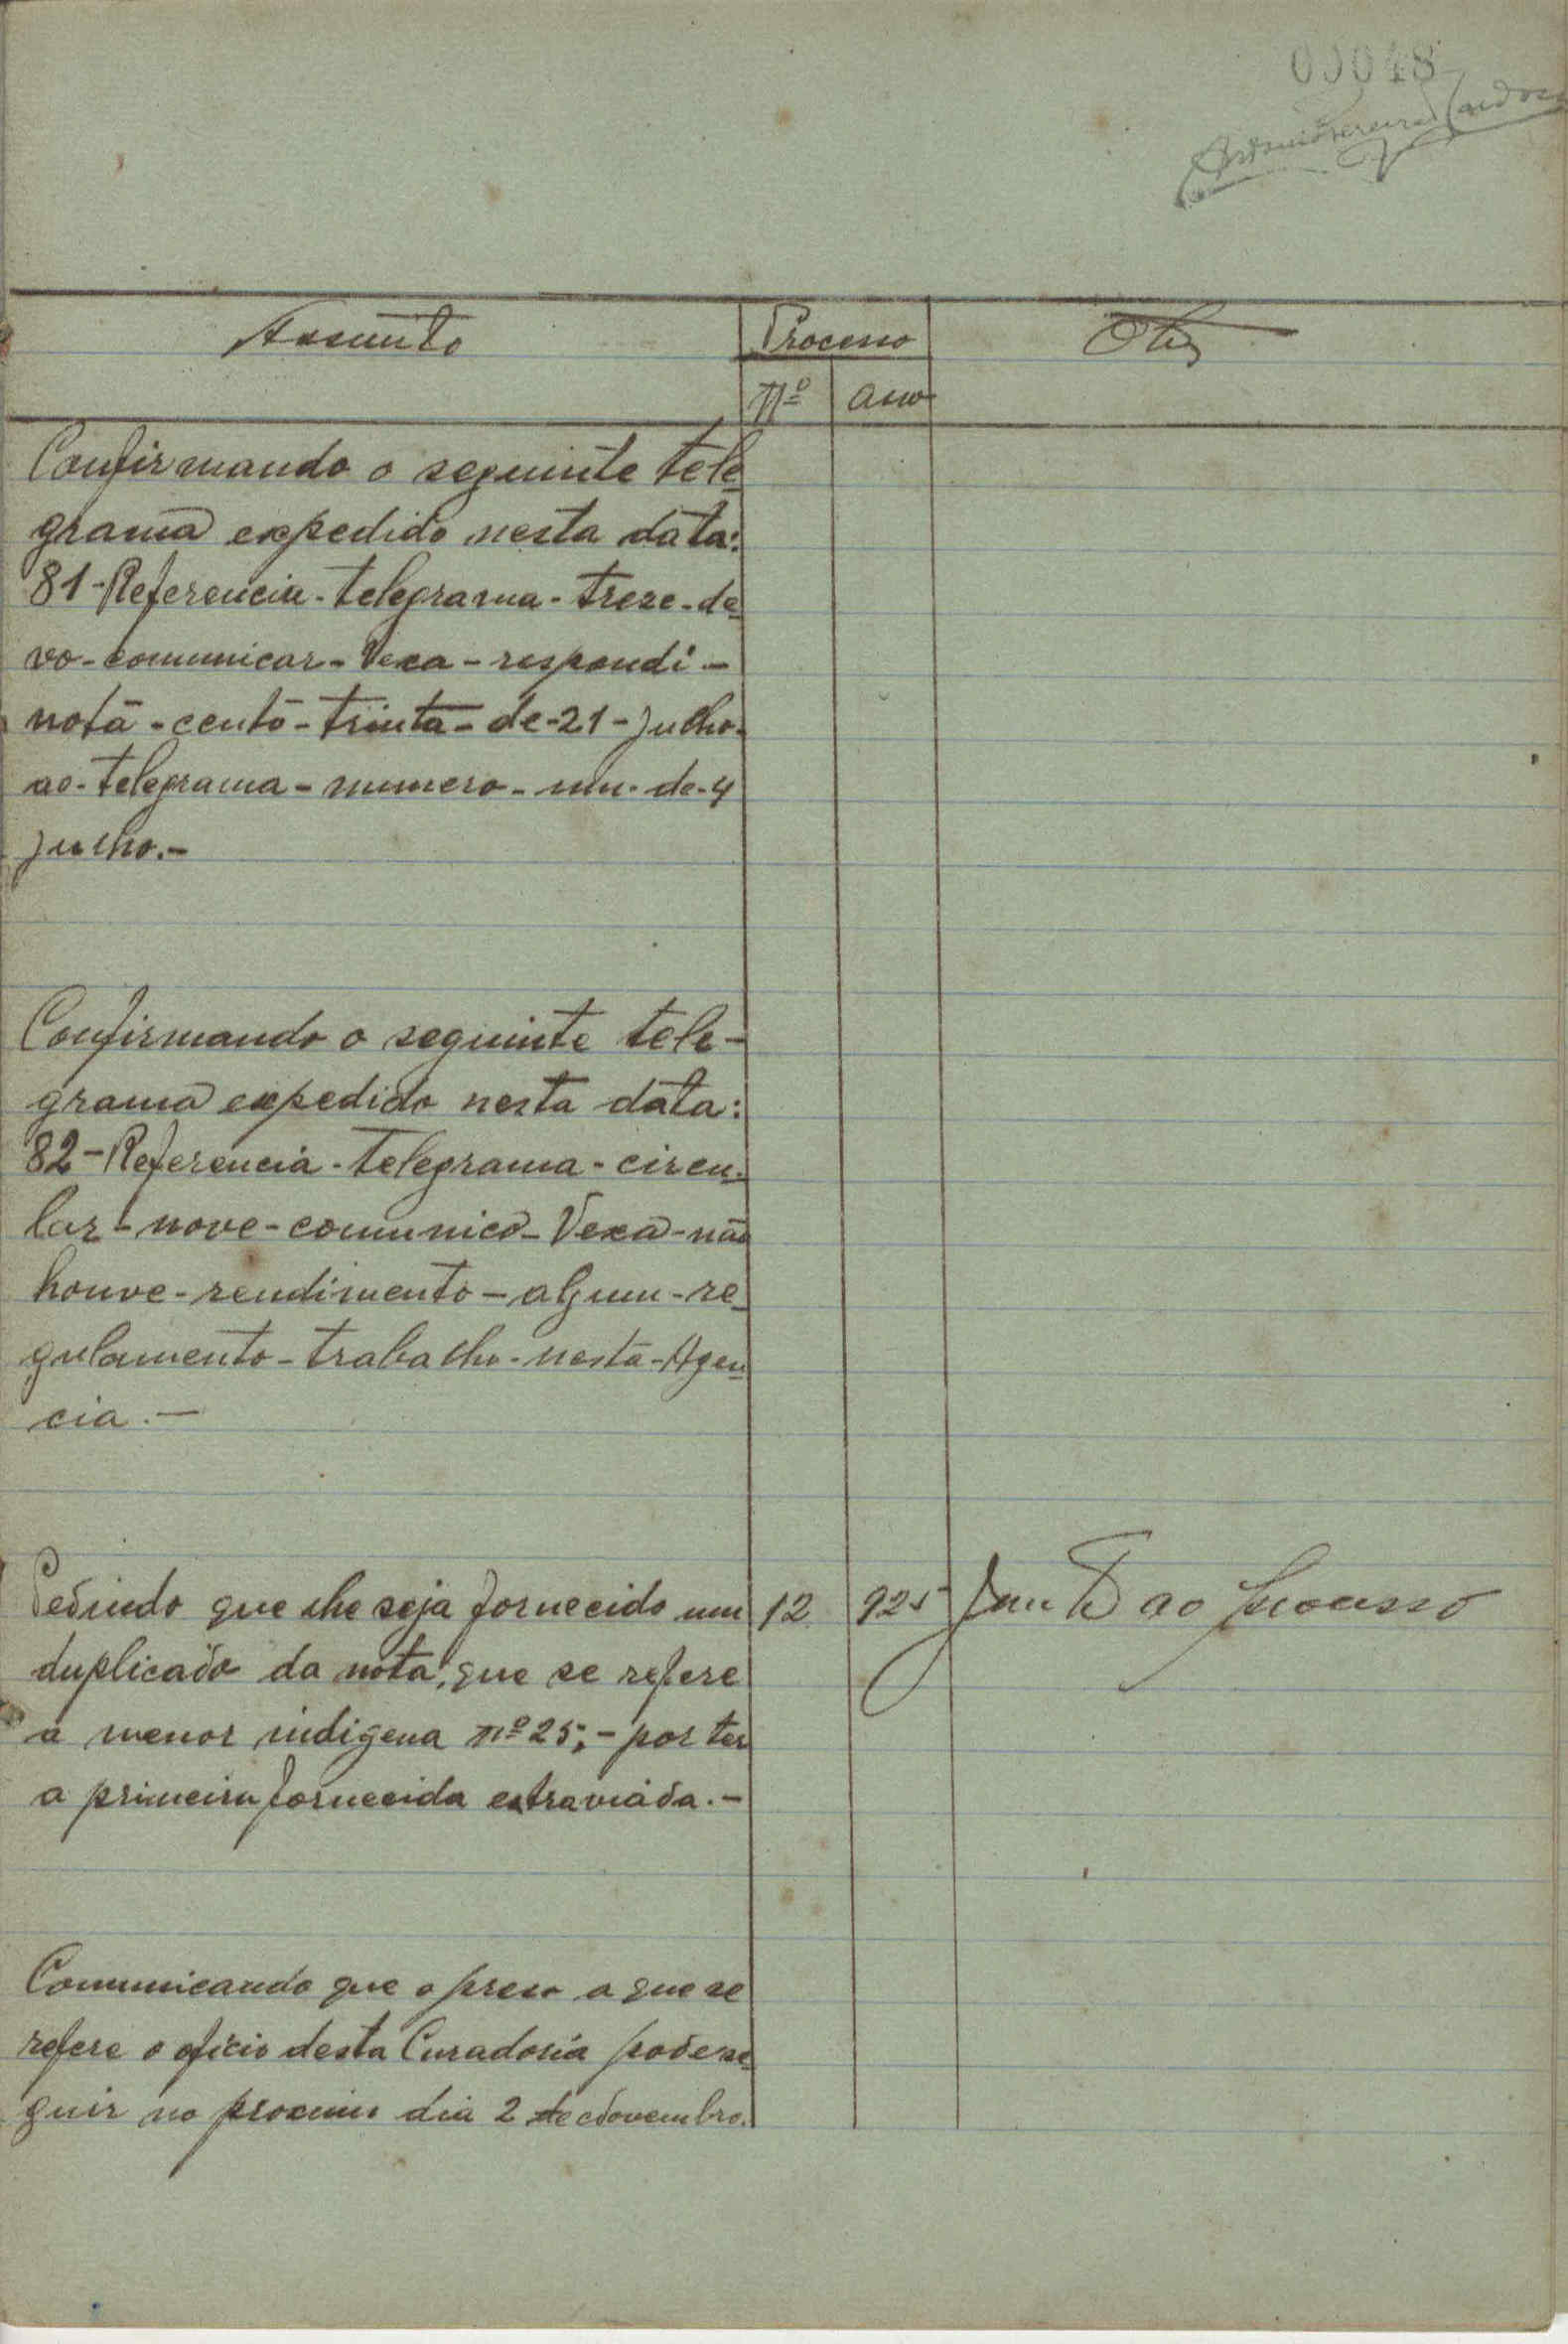 00048
Antonio Pereira Cardoso
Assunto
Processo
Obs
Nº
Ano
Confirmando o seguinte tele-
grama expedido nesta data:
81-Referencia-telegrama-treze-de-
vo-comunicar-Vexa-respondi-
nota-cento-trinta-de-21-julho-
ao-telegrama-numero-um-de-4
julho.-
Confirmando o seguinte tele-
grama expedido nesta data:
82-Referencia-telegrama-circu-
lar-nove-comunico-Vexa-não
houve-rendimento-algum-re-
gulamento-trabalho-nesta-Agen-
cia.-
Pedindo que lhe seja fornecido um
12
925
ao processo
duplicado da nota, que se refere
a menor indigena nº 25,- por ter
a primeira fornecida extraviada.-
Comunicando que o preso a que se
refere o oficio desta Curadoria pode se-
guir no proximo dia 2 de Novembro.